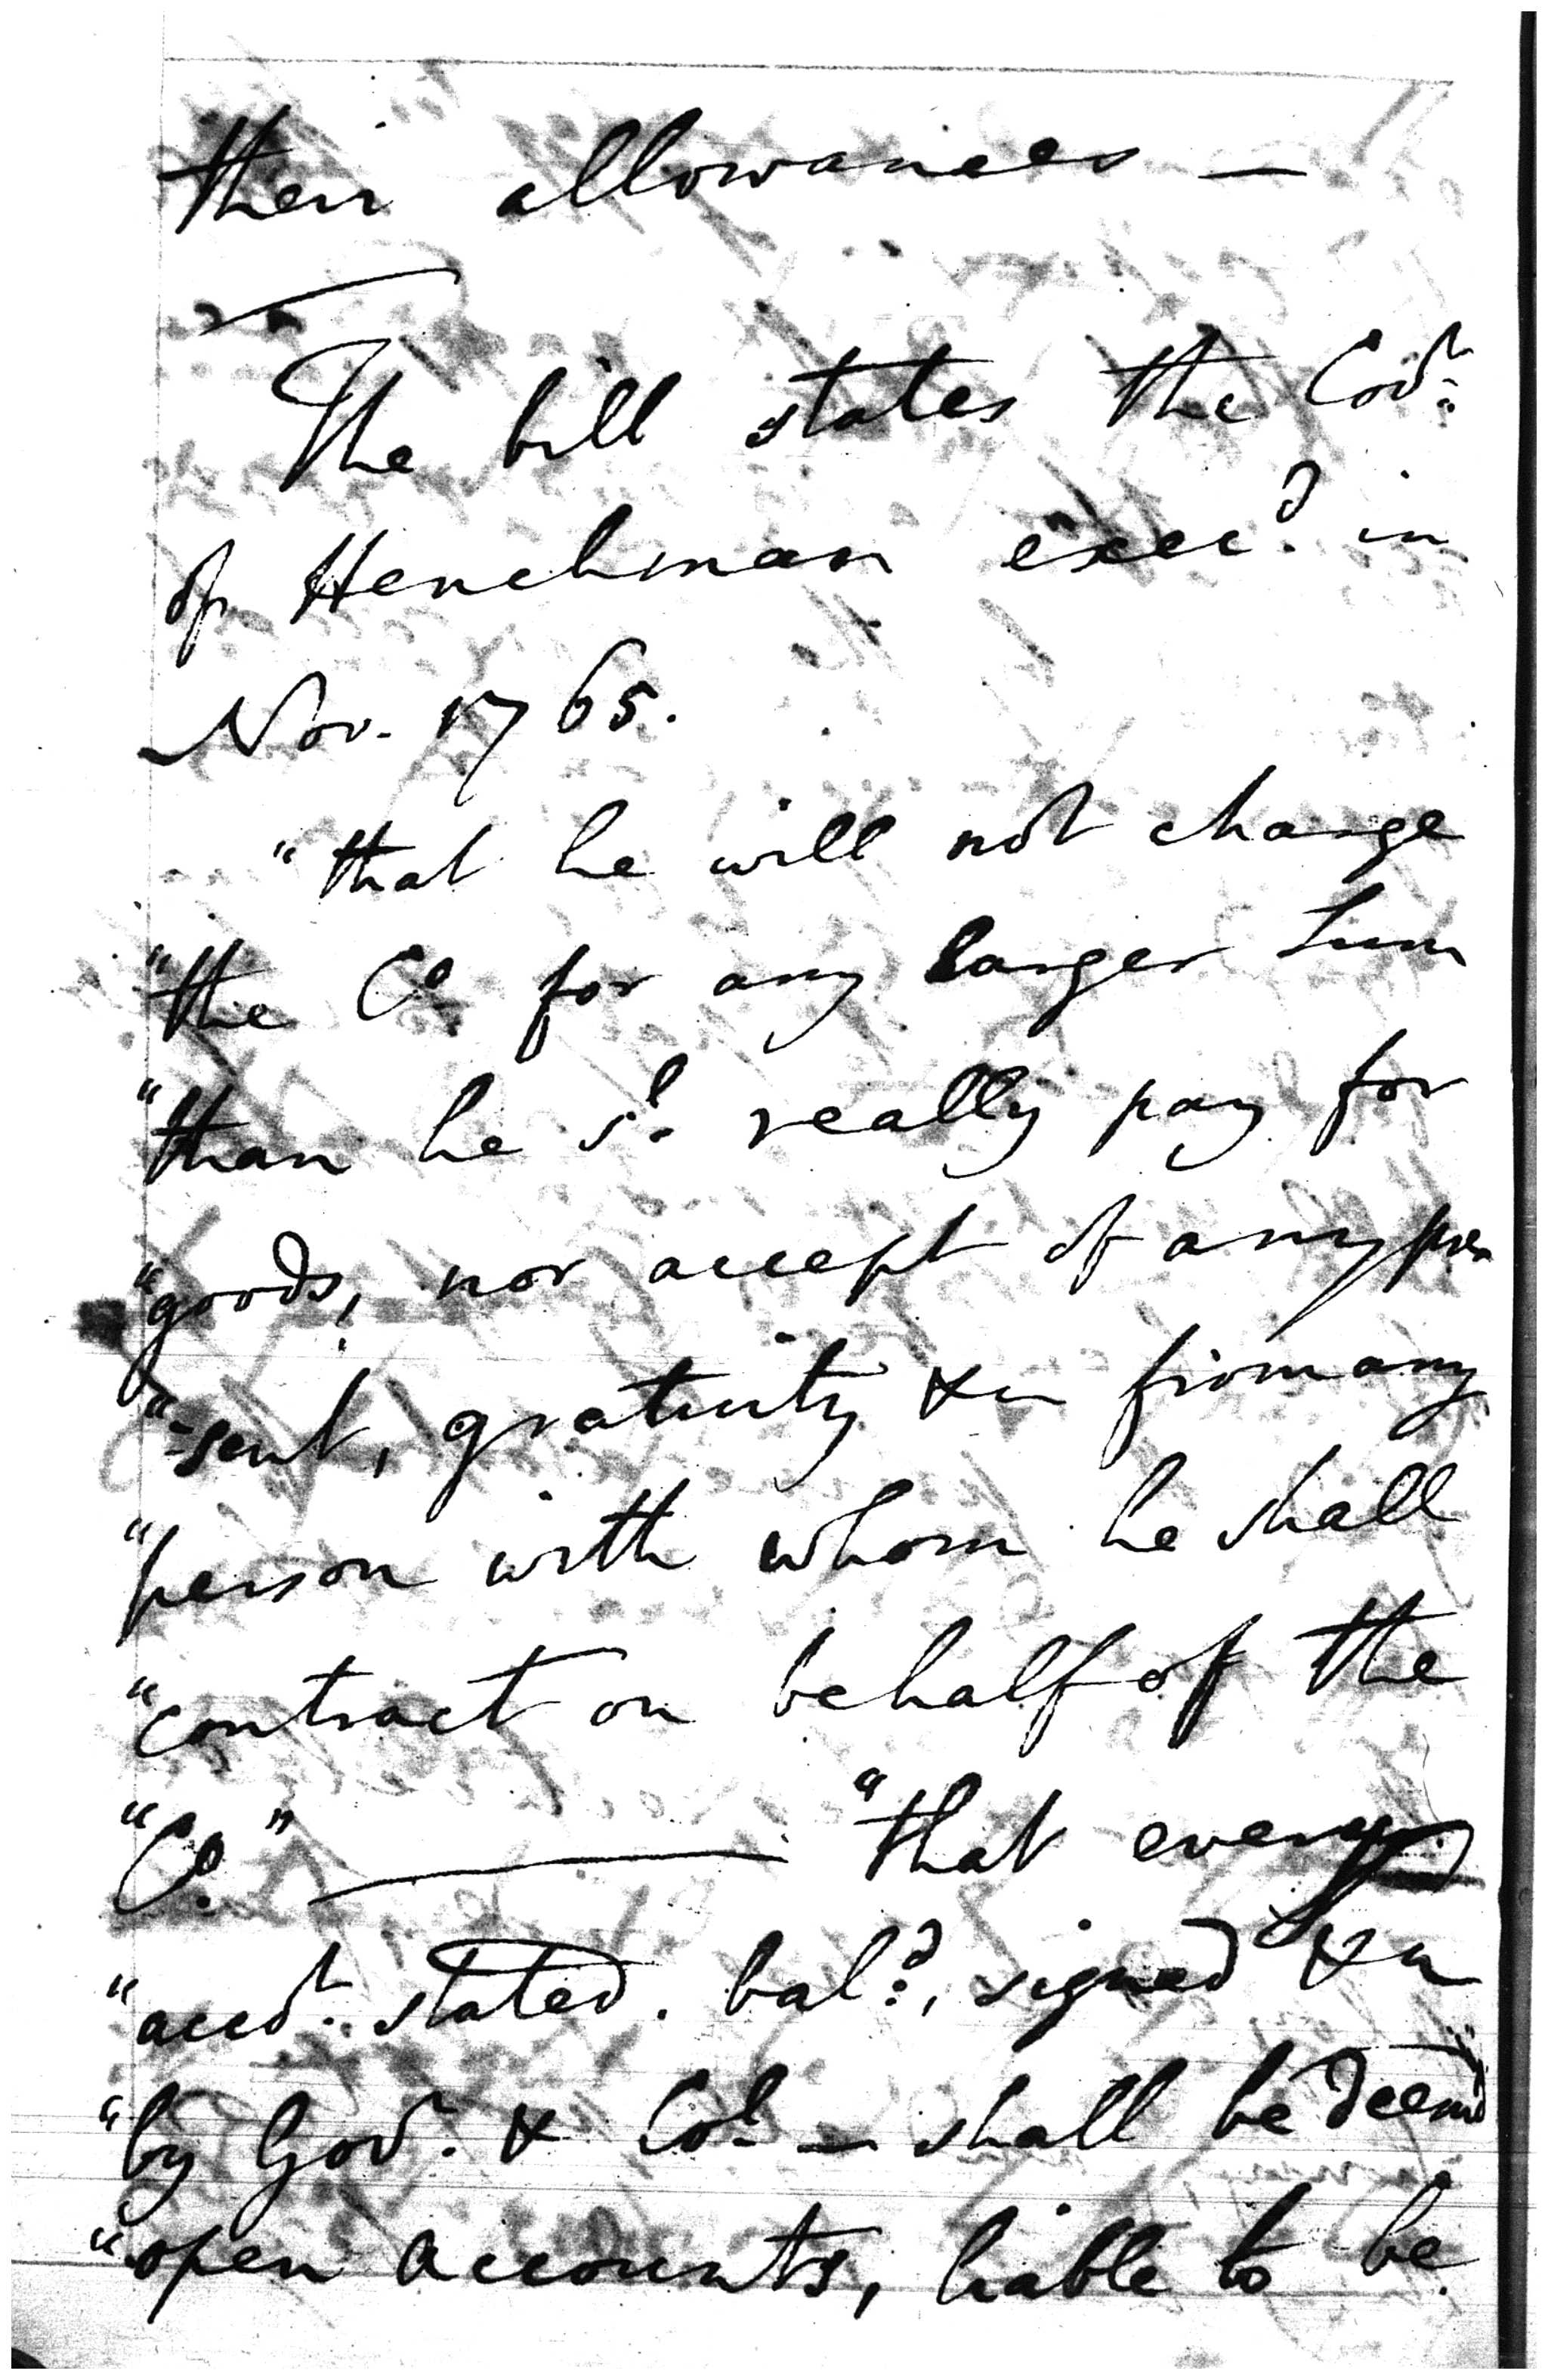 their allowances —
The bill states the Cov.t
of Henchman exec.d in
Nov. 1765.
"that he will not charge
"the Co for any larger sum
"than he s.d really pay for
"goods, nor accept of any pre
"-sent, gratuity &c from any
"person with whom he shall
"contract on behalf of the
"Co." ——— "that every
"acct. stated. bal.d, signed &c
"by Gov.r & Co.l — shall be deemd
"open accounts, liable to be